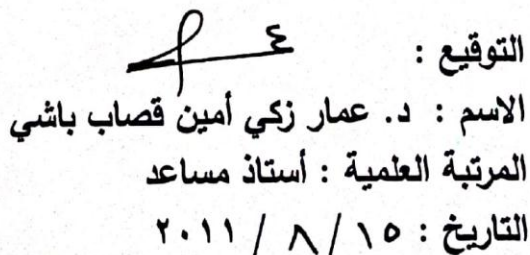 التوقيع :
الاسم : د. عمار زكي أمين قصاب باشي
المرتبة العلمية : أستاذ مساعد
التاريخ : ١٥ / ٨ / ٢٠١١